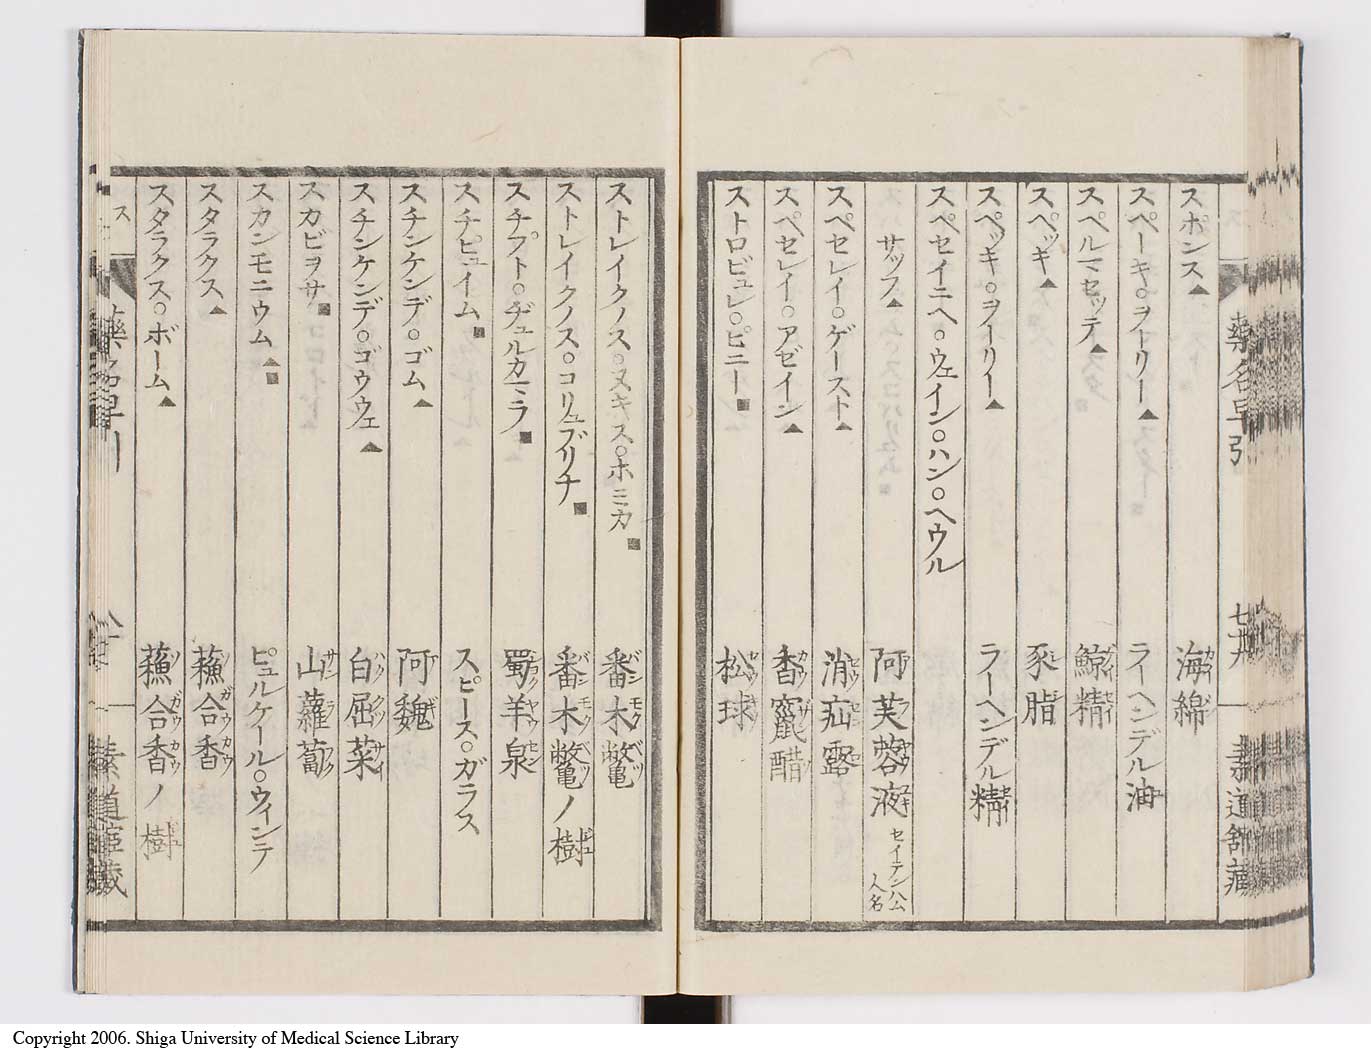 藥名早引
七十九
蓁道館藏
スポンス▲ 海綿
スペーキ○ヲトリー▲ ラーヘンデル油
スペルマセッテ▲ 鯨精
スペッキ▲ 豕脂
スペッキ○ヲーリー▲ ラーヘンデル精
スペセイニヘ○ウェイン○ハン○ヘウル
サッフ▲ 阿芙蓉液 セイデンハム人名
スペセレイ○ゲースト▲ 消疝露
スペセレイ○アゼイン▲ 香竄醋
ストロビュレ○ピニー■ 松球
ストレイクノス○ヌキス○ホミカ■ 番木鼈
ストレイクノス○コリュブリナ■ 番木鼈ノ樹
スチプト○ヂュルカミラ■ 蜀羊泉
スチピュイム■ スピース○ガラス
スチンケンデ○ゴム▲ 阿魏
スチンケンデ○ゴウウェ▲ 白屈菜
スカビヲサ■ 山蘿蔔
スカンモニウム▲■ ピュルケール○ウィンデ
スタラクス▲ 蘓合香
スタラクス○ボーム▲ 蘓合香ノ樹
ス
藥名早引
Copyright 2006. Shiga University of Medical Science Library